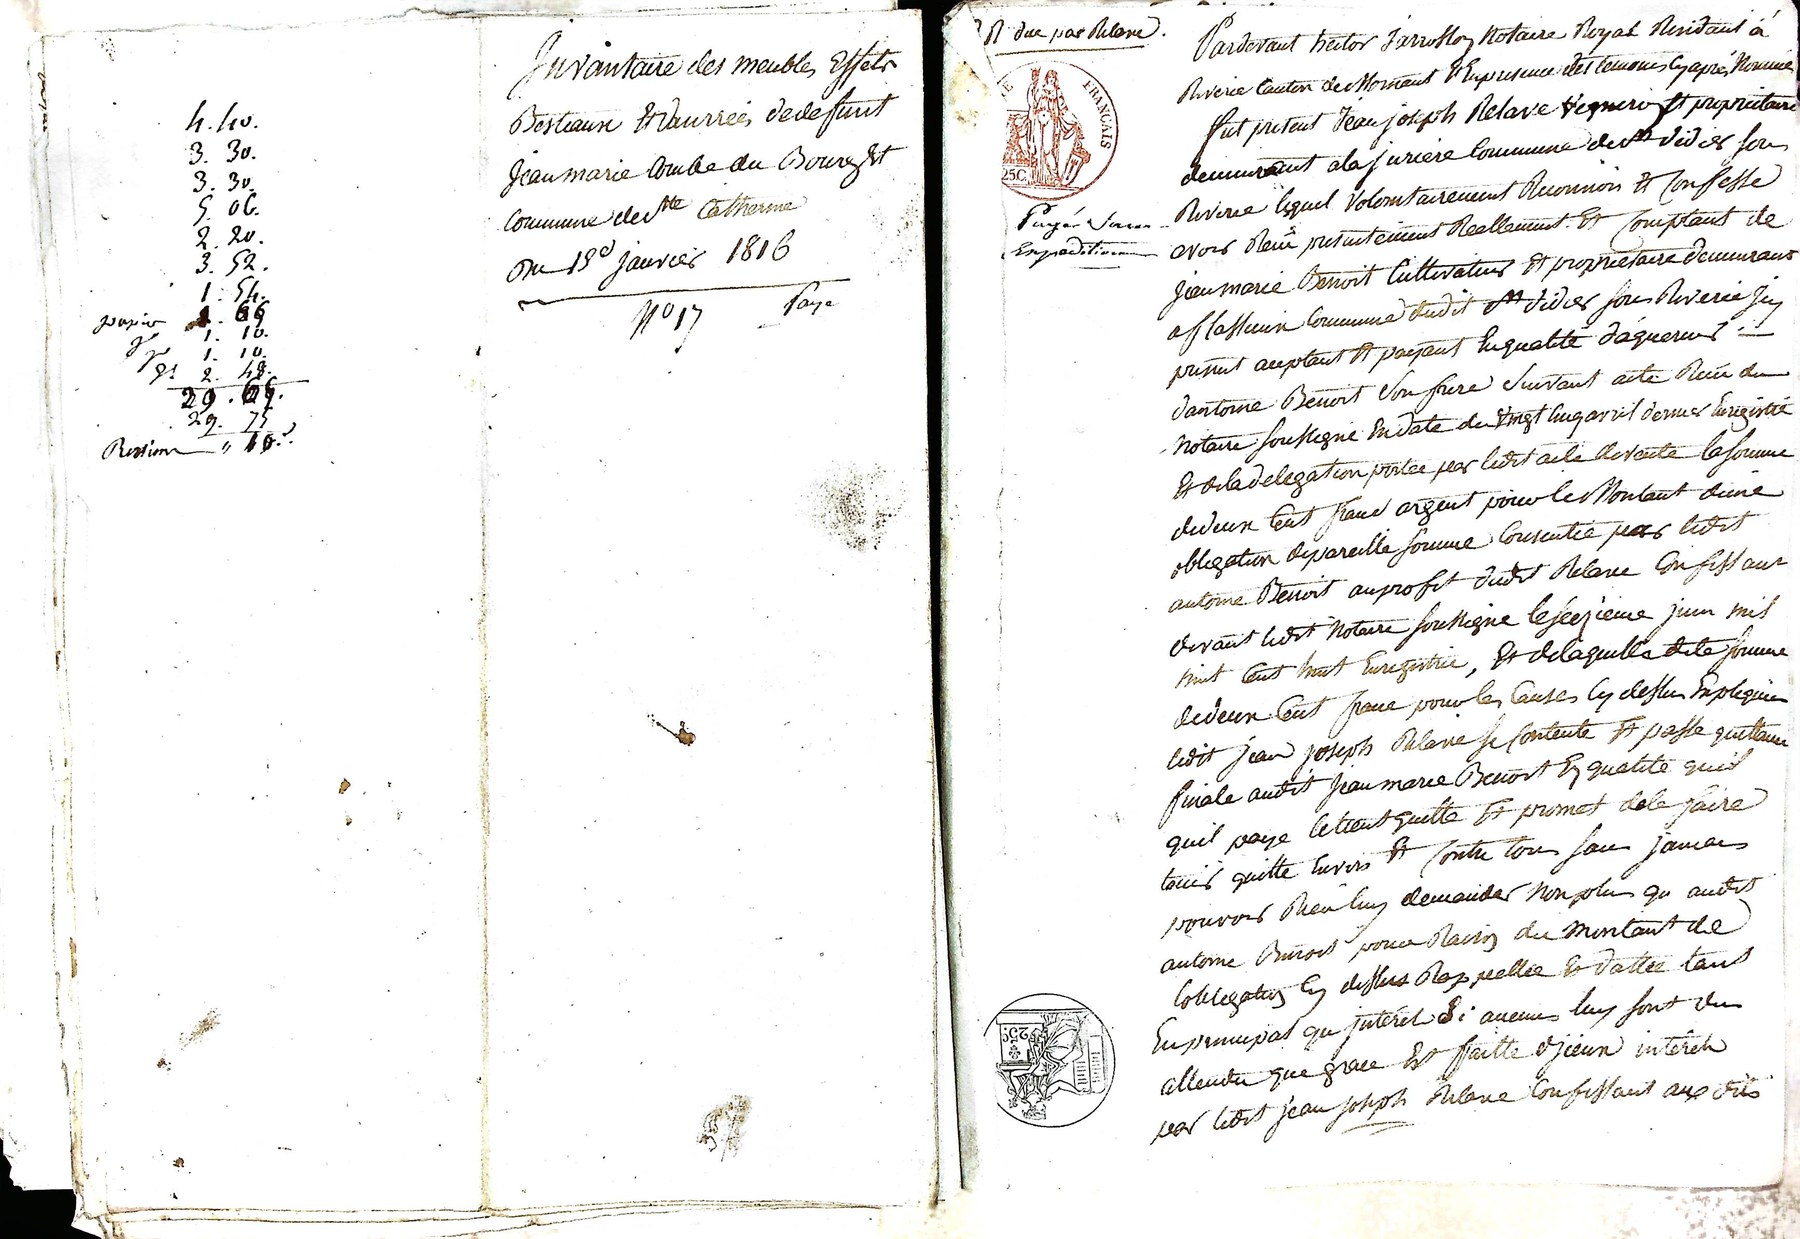 4. 40.
3. 30.
3. 30.
5. 06.
2. 20.
3. 52.
1. 54.
papier 1. 66
1. 10.
1. 10.
2. 48.
29. 65.
29. 75
" 10.
Inventaire des meubles Effets
Bestiaux Et danrrées de defunt
Jean marie Combe du Bourg Et
Commune de Ste Catherine
Du 13d janvier 1816
No 17 Payé
Rt due par Relave.
FRANÇAIS
25C.
Payé
Expedition
Pardevant hector Jarrosson Notaire Royal Residant à
Riverie Canton de Mornant Et En presence des temoins Cy après Nommés
fut present Jean joseph Relave Et proprietaire
demeurant a la juriere Commune de st didier sous
Riverie lequel volontairement Reconnois Et Confesse
avoir Reçu presentement Reellement Et Comptant de
jean marie Benoit Cultivateur Et proprietaire demeurant
a Commune dudit st didier sous Riverie Icy
present acceptant Et payant En qualité d'aquereur
d'antoine Benoit son frere suivant acte Reçu du
Notaire soussigné En date du vingt Cinq avril dernier Enregistré
Et de la delegation portée par ledit acte de vente la somme
de deux Cent franc argent pour le Montant d'une
obligation de pareille somme Consentie par ledit
antoine Benoit au profit dudit Relave Confissant
devant ledit Notaire soussigné le seizieme juin mil
huit Cent huit Enregistrée, Et de laquelle dite somme
de deux Cent franc pour les Causes Cy dessus Expliquées
ledit jean joseph Relave se Contente Et passe quittance
finale audit jean marie Benoit En qualité qu'il
quil paye le tient quitte Et promet de le faire
tenir quitte Envers Et Contre tous sans jamais
pouvoir Rien luy demander Non plus qu audit
antoine Benoit pour Raison du montant de
lobligation Cy dessus Rappellée Et dattée tant
En principal que jnterêt Si aucuns luy sont dus
attendu que grace Est faitte d'jceux intérêts
par ledit jean joseph Relave Confissant aux dits
25C.